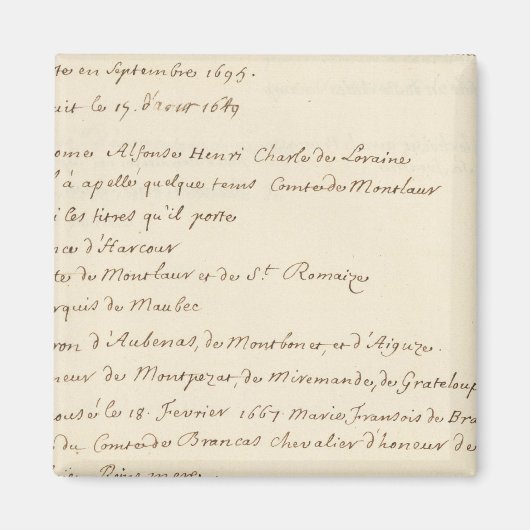 te en Septembre 1695.
uit le 15. d'aout 1649
ome Alfonse Henri Charle de Loraine
l à apellé quelque tems Comte de Montlaur
i les titres qu'il porte
nce d'Harcour
te de Montlaur et de S.t Romaize
rquis de Maubec
ron d'Aubenas, de Montbonet, et d'Aiguze.
neur de Montpezat, de Miremande, de Grateloup
ousé le 18. Fevrier 1667. Marie Fransois de Bra
e du Comte de Brancas Chevalier d'honeur de
Reine mere